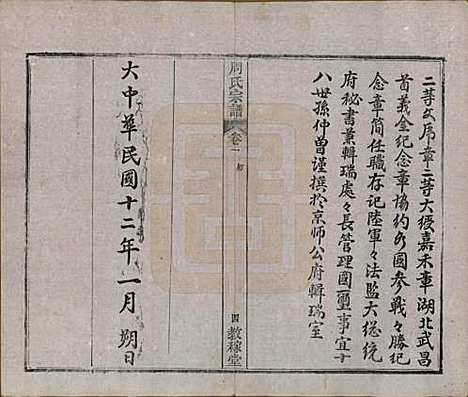 二等文虎章二等大綬嘉禾章湖北武昌
首義金紀念章協約各國參戰々勝紀
念章簡任職存記陸軍々法監大總統
府秘書兼輯瑞處々長管理國璽事宜十
八世孫仲曾謹撰於京师公府輯瑞室
周氏宗譜
卷一
四
教稼堂
大中華民國十二年一月朔日